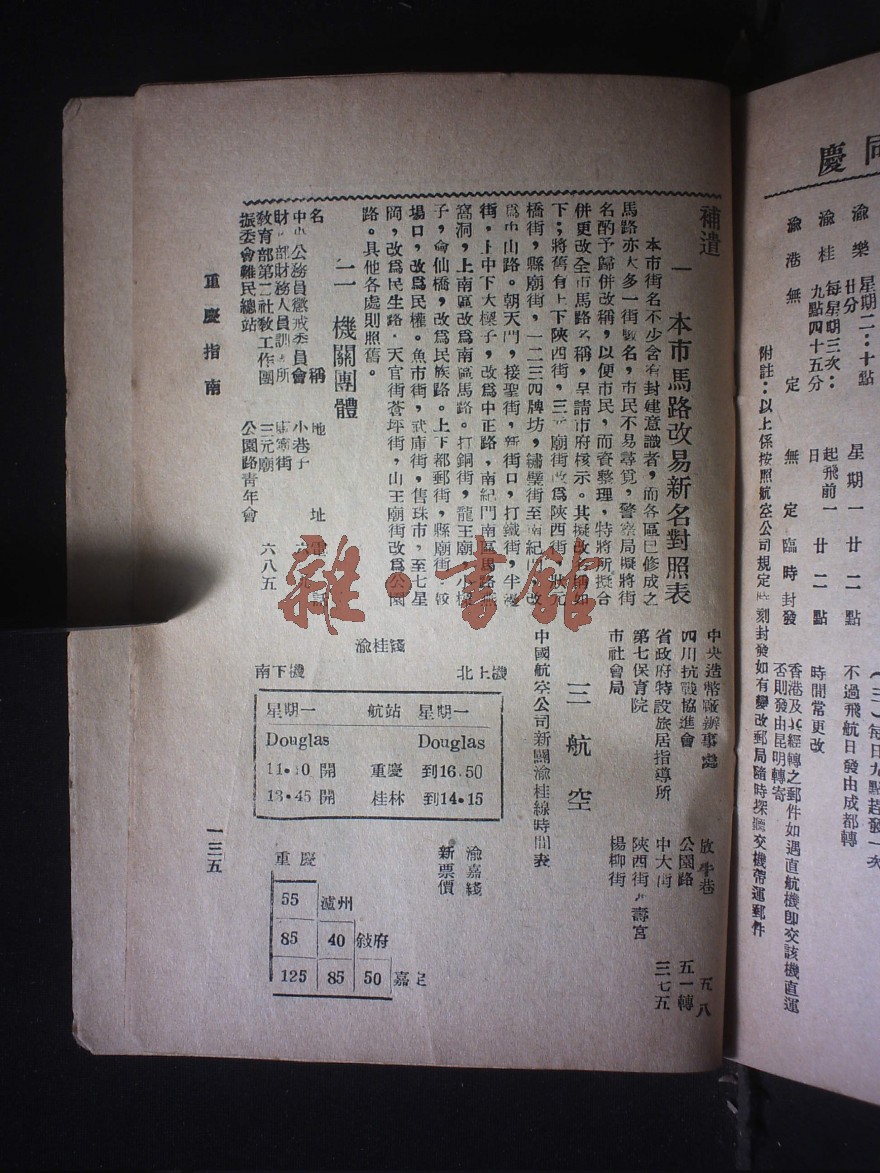 同慶
渝樂 星期二：十點廿分 星期一 廿二點
渝桂 每星期三次：九點四十五分 起飛前一日 廿二點 不過飛航日發由成都轉
渝港 無定 無定 臨時封發 時間常更改
香港及 經轉之郵件如遇直航機卽交該機直運
否則發由昆明轉寄
附註：以上係按照航空公司規定 刻封發如有變改郵局隨時探聽交機帶運郵件
補遺
一 本市馬路改易新名對照表
本市街名不少含有封建意識者，而各區已修成之
馬路亦大多一街數名，市民不易尋覓，警察局擬將街
名酌予歸併改稱，以便市民，而資整理，特將所擬合
併更改全市馬路名稱，呈請市府核示。其擬改名稱如
下；將舊有上下陝西街，三元廟街改爲陝西街，狀元
橋街，縣廟街，一二三四牌坊，繡璧街至南紀門，改
爲中山路。朝天門，接聖街，新街口，打鐵街，半邊
街，上中下大樑子，改爲中正路，南紀門南區馬路燕
窩洞，上南區改爲南區馬路。打銅街，龍王廟，小樑
子，會仙橋，改爲民族路。上下都郵街，縣廟街 較
場口，改爲民權。魚市街，武庫街，售珠市，至七星
岡，改爲民生路。天官街蒼坪街，山王廟街改爲公園
路。其他各處則照舊。
二 機關團體
名稱 地址 電話
中央公務員懲戒委員會 小巷子
財 部財務人員訓 所 街
敎育部第二社敎工作團 三元廟
振委會難民總站 公園路靑年會 六八五
中央造幣廠辦事處 放牛巷 五八
四川抗戰協進會 公園路 五一轉
省政府特設旅居指導所 中大街 三七五
第七保育院 陝西街 壽宮
市社會局 楊柳街
三 航空
中國航空公司新闢渝桂線時間表
渝桂綫
南下機 北上機
星期一 航站 星期一
Douglas Douglas
11·10 開 重慶 到16.50
13·45 開 桂林 到14·15
渝嘉綫
新票價
重慶
55 瀘州
85 40 敍府
125 85 50 嘉定
重慶指南
一三五
雜·書館